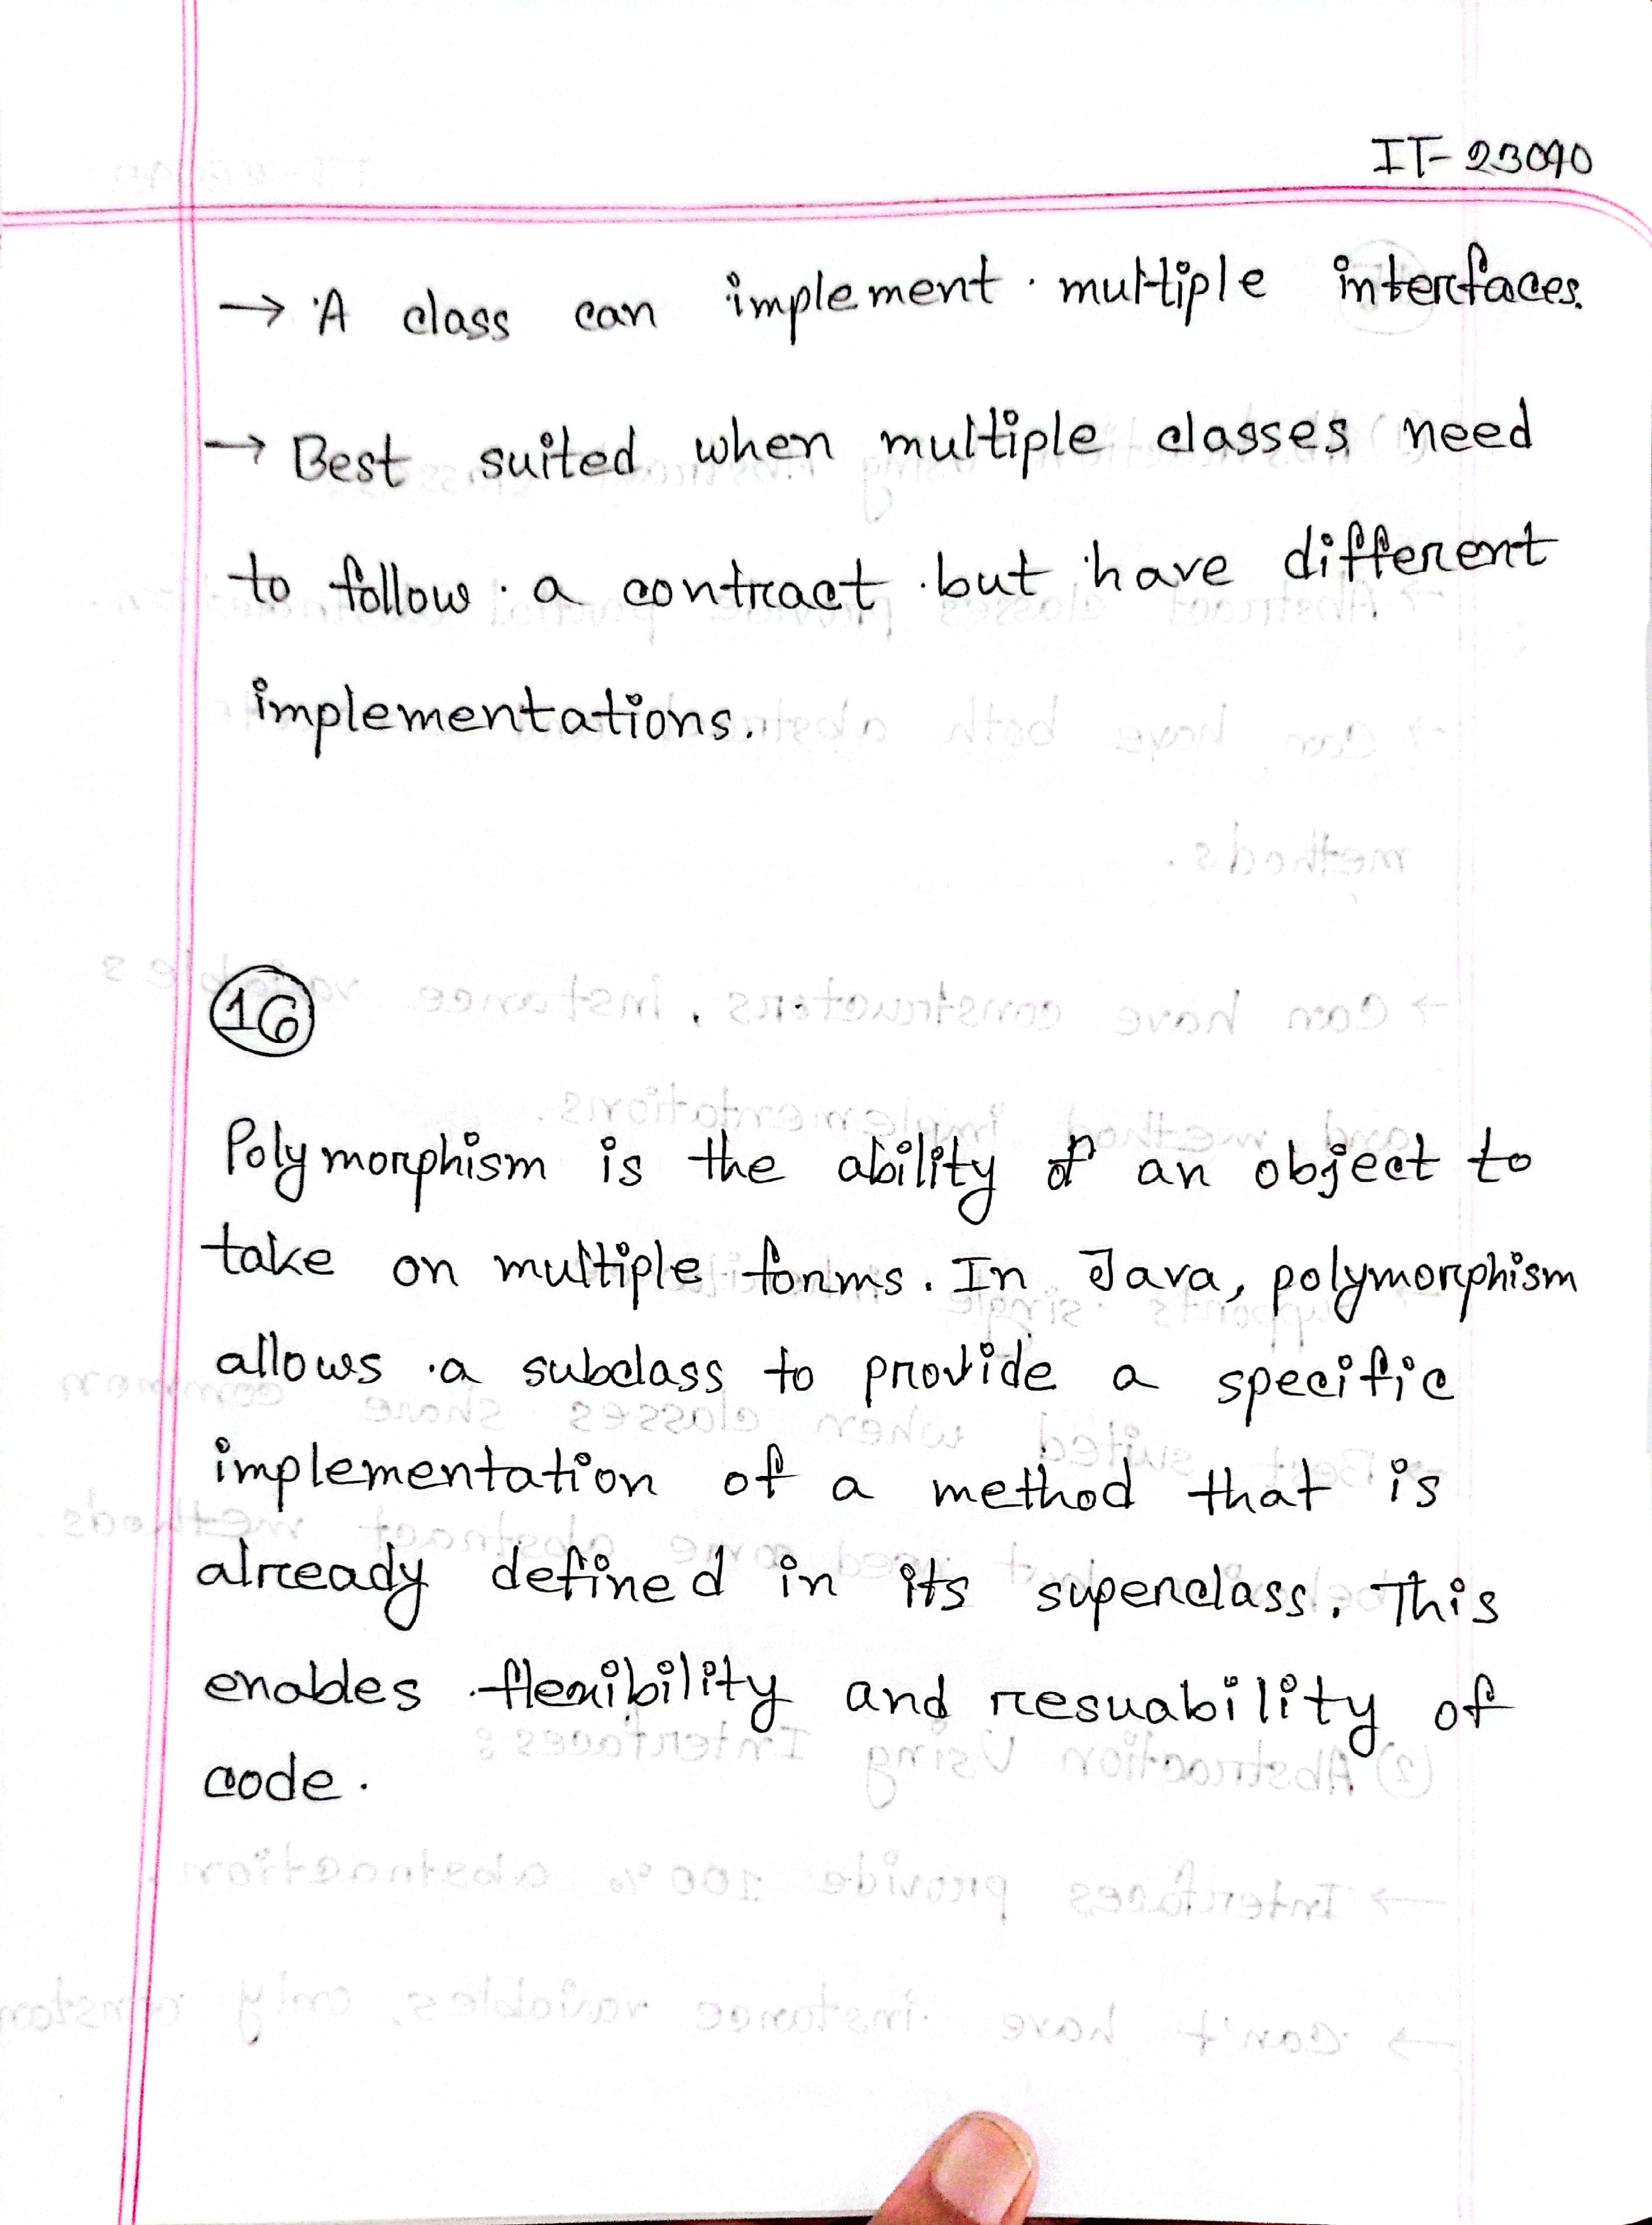 IT-23090
→ A class can implement multiple interfaces.
→ Best suited when multiple classes need
to follow a contract but have different
implementations.
16
Polymorphism is the ability of an object to
take on multiple forms. In Java, polymorphism
allows a subclass to provide a specific
implementation of a method that is
already defined in its superclass. This
enables flexibility and resuability of
code.